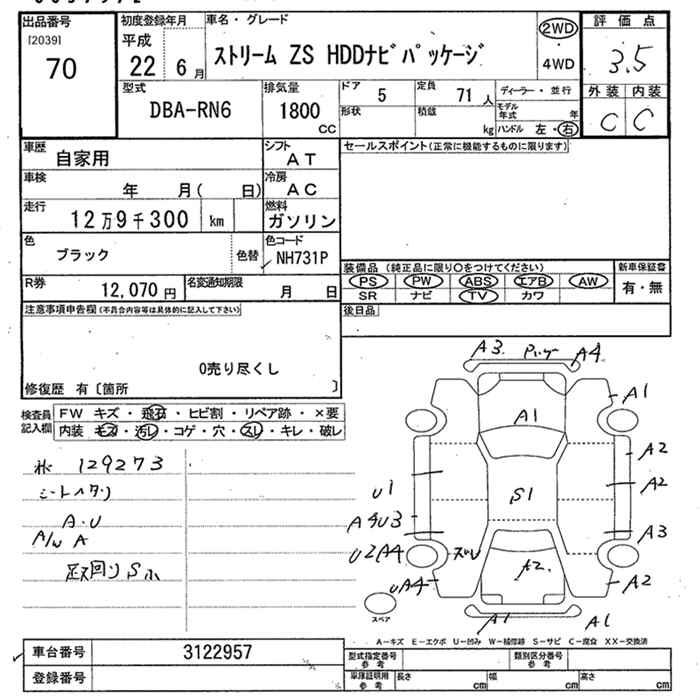 出品番号
[2039]
70
初度登録年月
平成
22 6月
車名・グレード
ストリーム ZS HDDナビパッケージ
2WD
4WD
評価点
3.5
外装 内装
C C
型式
DBA-RN6
排気量
1800
CC
ドア
5
定員
71人
形状
積載
kg
ディーラー・並行
モデル年式 年
ハンドル 左・右
車歴
自家用
シフト
AT
車検
年 月( 日)
冷房
AC
走行
12万9千300 km
燃料
ガソリン
色
ブラック
色替
色コード
NH731P
R券
12,070円
名変通知期限
月 日
セールスポイント(正常に機能するものに限ります)
装備品(純正品に限り○をつけてください)
PS PW ABS エアB AW
SR ナビ TV カワ
新車保証書
有・無
後日品
注意事項申告欄(不具合内容等は具体的に記入して下さい)
0売り尽くし
修復歴 有〔箇所 〕
検査員記入欄
FW キズ・飛石・ヒビ割・リペア跡・×要
内装 キズ・汚レ・コゲ・穴・スレ・キレ・破レ
129273
シートヘタリ
A・U
A/W A
足回りSホ
A3 A4
A1 A1
A2
A2
S1
U1
A4U3
A3
U2A4 ズレ
A2
UA4 A2
A1 A1
スペア
A-キズ E-エクボ U-凹み W-補修跡 S-サビ C-腐食 XX-交換済
車台番号
3122957
登録番号
型式指定番号
参考
類別区分番号
参考
車庫証明用
参考
長さ cm
幅 cm
高さ cm